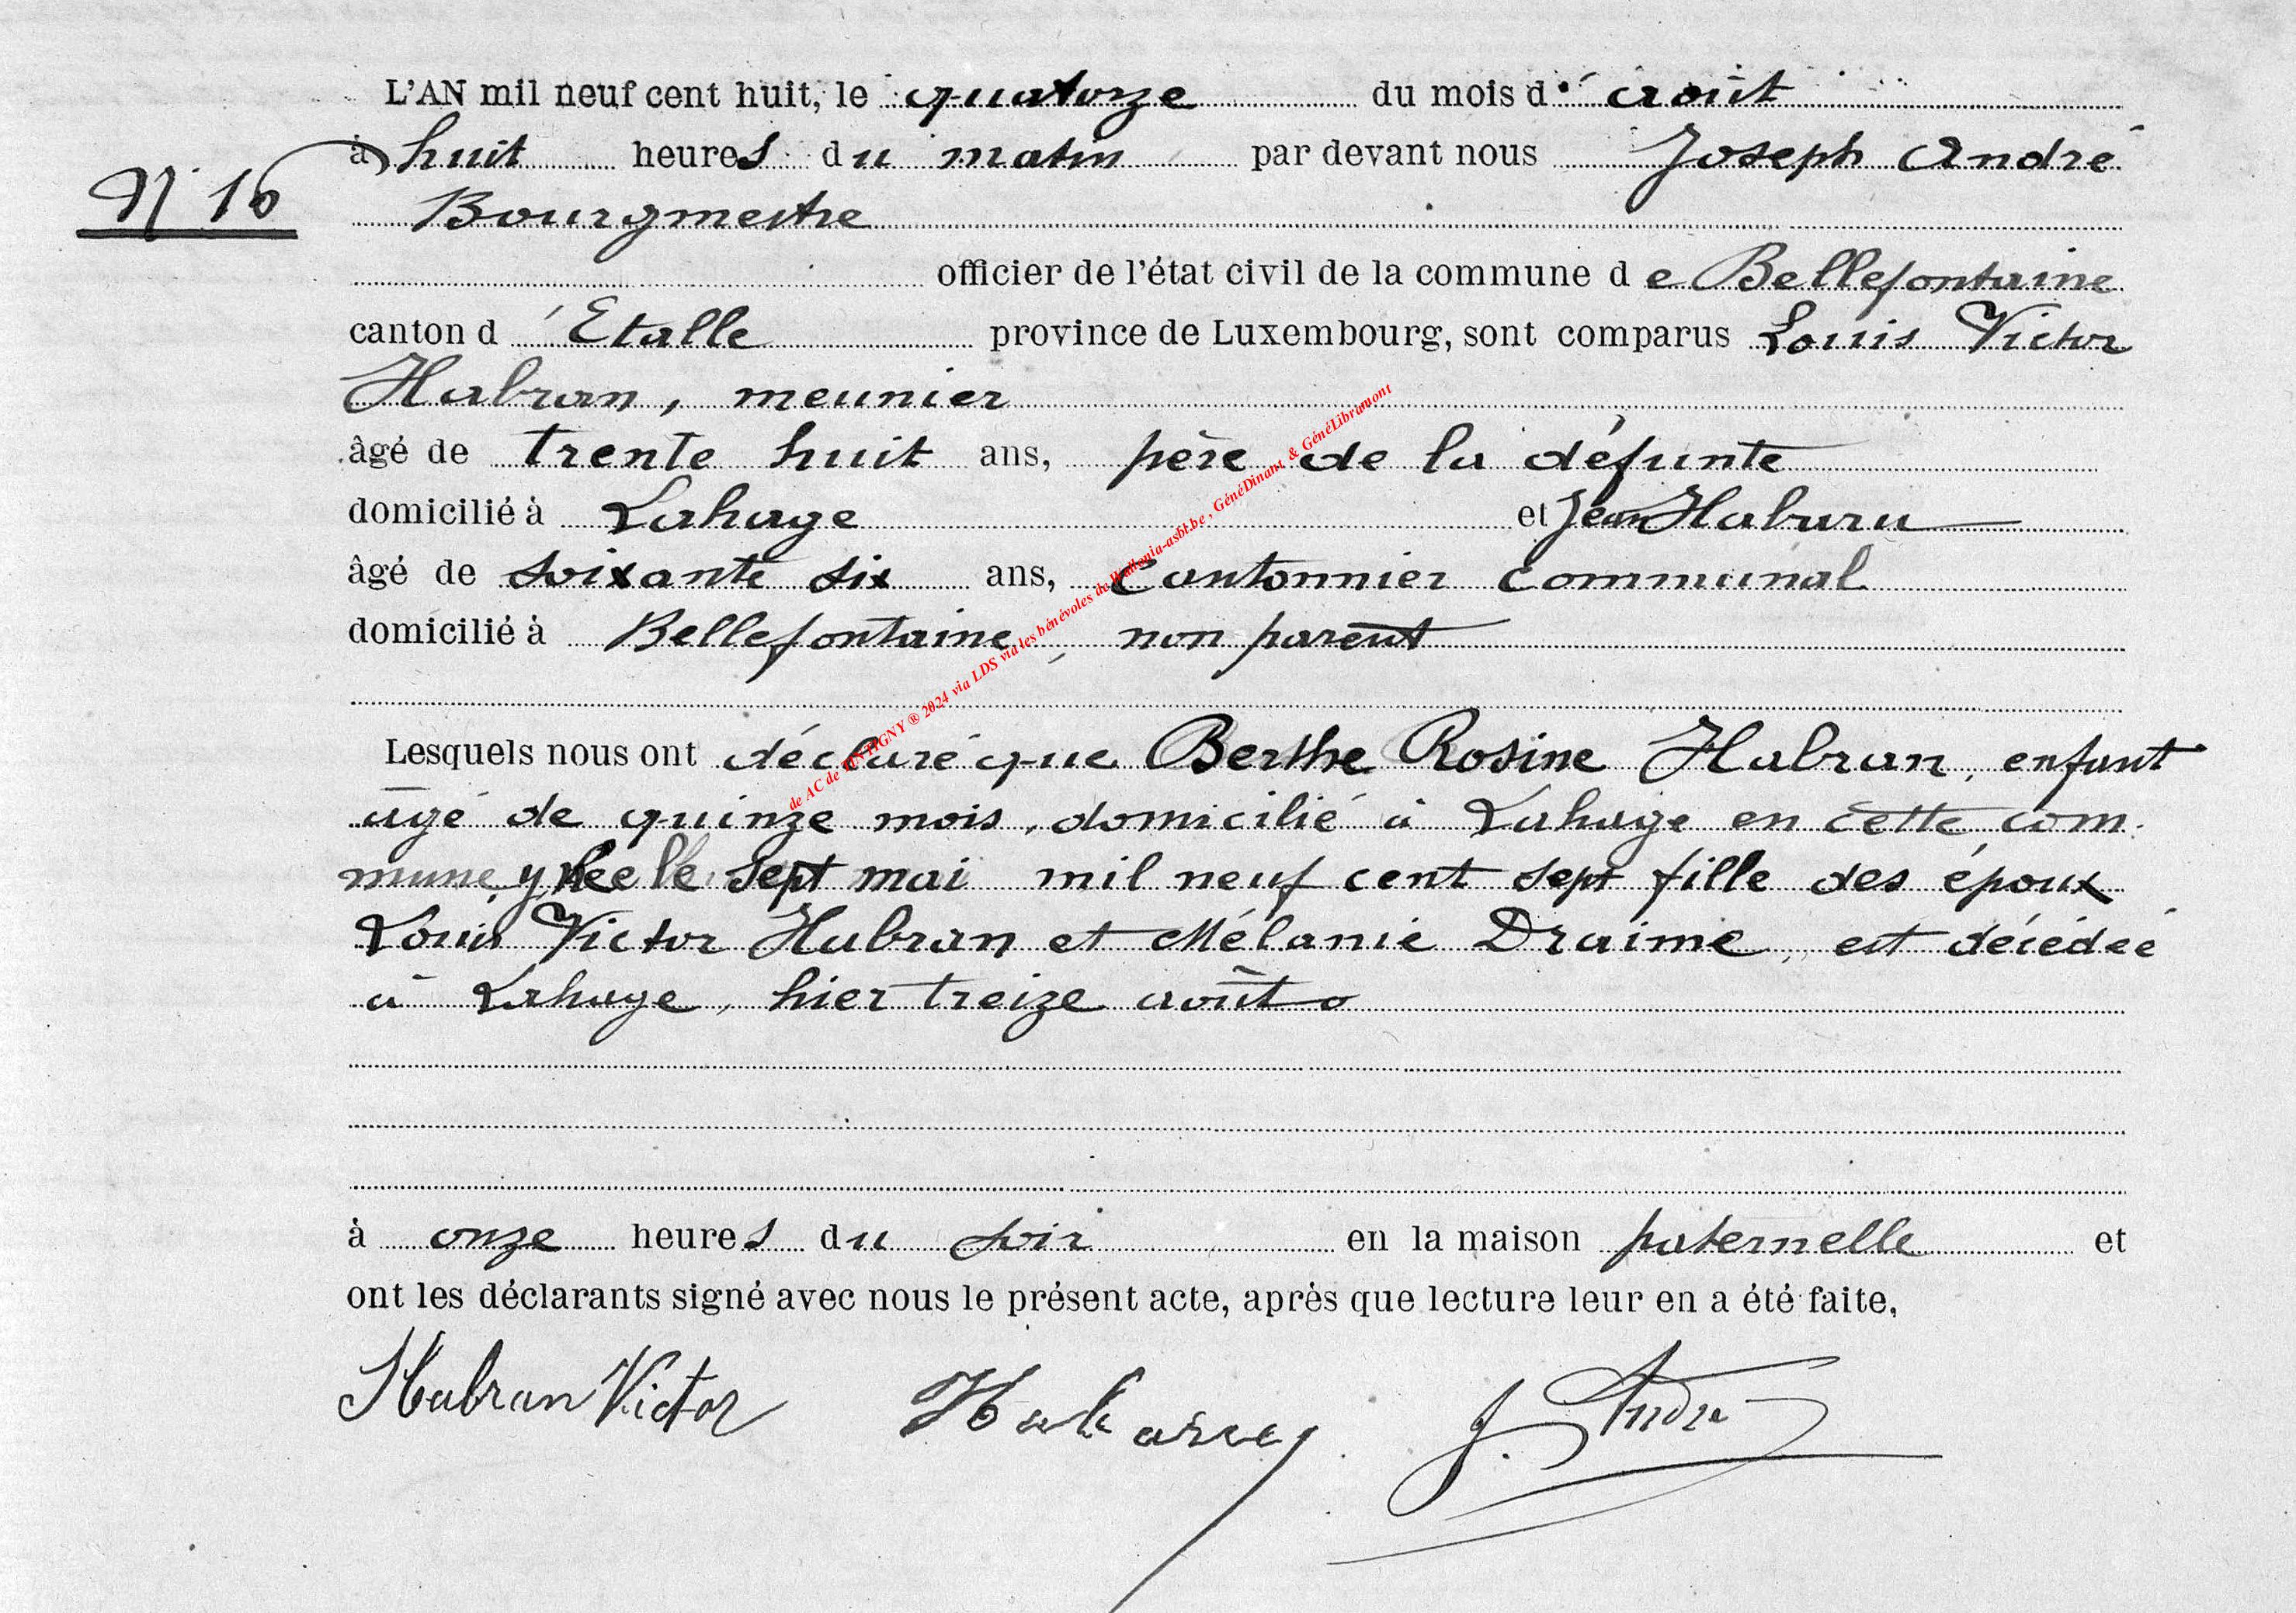 L'AN mil neuf cent huit, le quatorze du mois d' août
à huit heures du matin par devant nous Joseph André
N° 16
Bourgmestre
officier de l'état civil de la commune de Bellefontaine
canton d'Etalle province de Luxembourg, sont comparus Louis Victor
Habran, meunier
âgé de trente huit ans, père de la défunte
domicilié à Lahage et Jean Habaru
âgé de soixante six ans, cantonnier communal
domicilié à Bellefontaine, non parent
Lesquels nous ont déclaré que Berthe Rosine Habran, enfant
âgé de quinze mois, domicilié à Lahage en cette com-
mune, y née le sept mai mil neuf cent sept fille des époux
Louis Victor Habran et Mélanie Draime, est décédée
à Lahage, hier treize août
à onze heures du soir en la maison paternelle et
ont les déclarants signé avec nous le présent acte, après que lecture leur en a été faite,
Habran Victor Habaru J. André
de AC de TINTIGNY ® 2024 via LDS via les bénévoles de Wallonia-asbl.be, GénéDinant & GénéLibramont